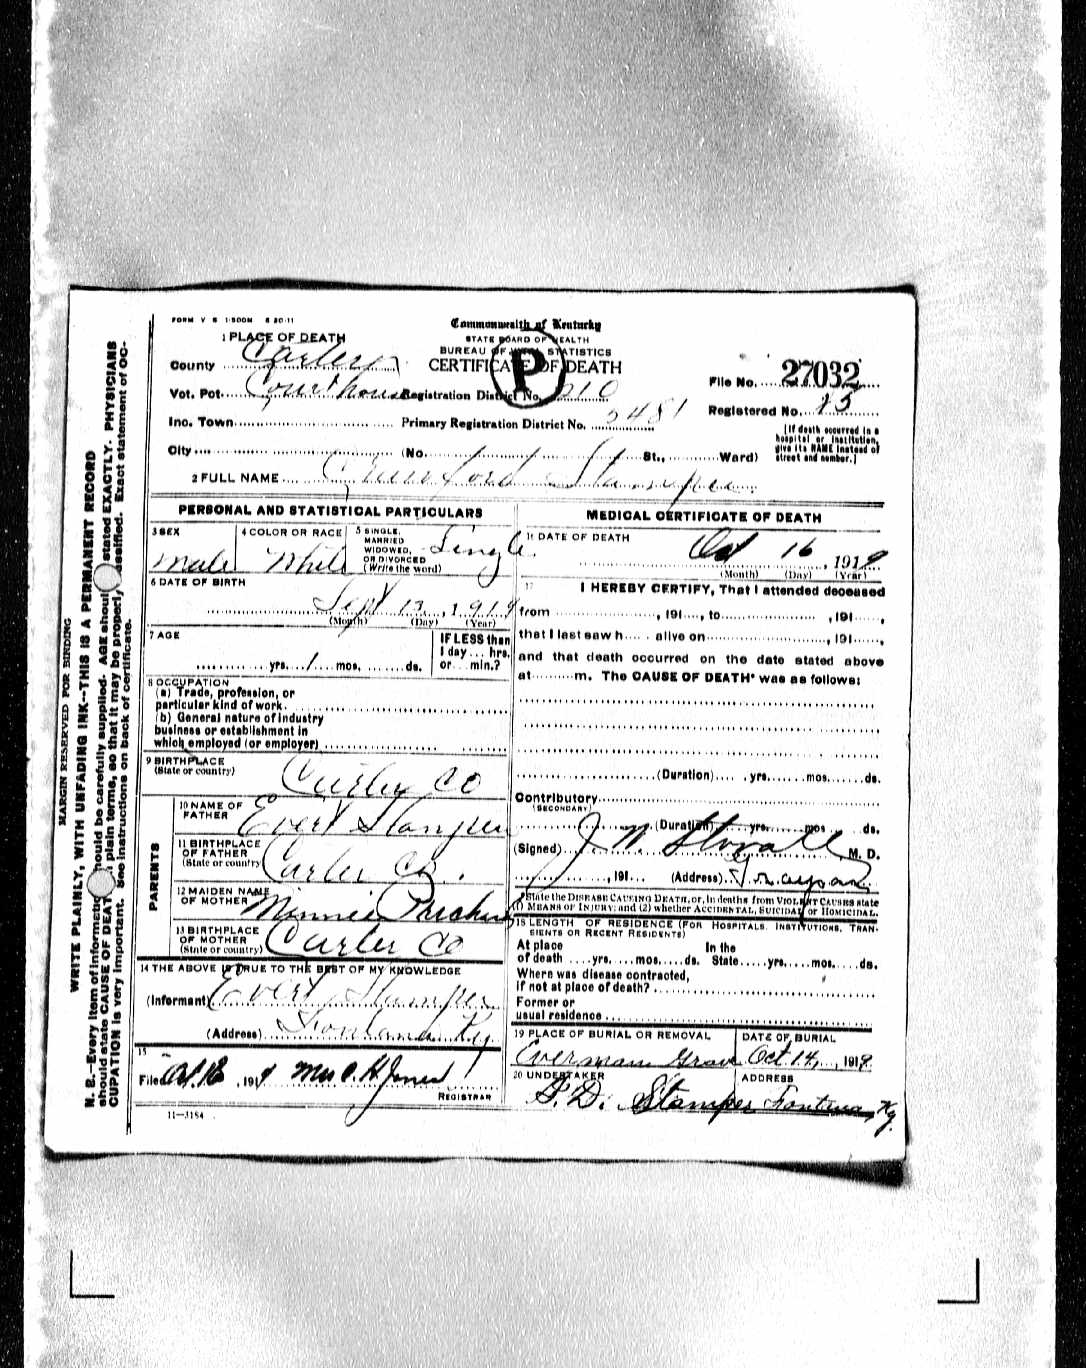 FORM V S 1-500M 8 20-11
Commonwealth of Kentucky
STATE BOARD OF HEALTH
BUREAU OF VITAL STATISTICS
CERTIFICATE OF DEATH
P
1 PLACE OF DEATH
County Carter
Vot. Pct. Courthouse Registration District No. 210
Inc. Town Primary Registration District No. 5481
City (No. St., Ward)
File No. 27032
Registered No. 15
[If death occurred in a hospital or institution, give its NAME instead of street and number.]
2 FULL NAME Crawford Stamper
PERSONAL AND STATISTICAL PARTICULARS
3 SEX Male
4 COLOR OR RACE White
5 SINGLE, MARRIED WIDOWED, OR DIVORCED (Write the word) Single
6 DATE OF BIRTH
Sept 13, 1919
(Month) (Day) (Year)
7 AGE
yrs. 1 mos. ds.
IF LESS than 1 day ... hrs. or ... min.?
8 OCCUPATION
(a) Trade, profession, or particular kind of work
(b) General nature of industry
business or establishment in
which employed (or employer)
9 BIRTHPLACE
(State or country) Carter CO
PARENTS
10 NAME OF FATHER Evert Stamper
11 BIRTHPLACE OF FATHER (State or country) Carter Co.
12 MAIDEN NAME OF MOTHER Minnie
13 BIRTHPLACE OF MOTHER (State or country) Carter Co
14 THE ABOVE IS TRUE TO THE BEST OF MY KNOWLEDGE
(Informant) Evert Stamper
(Address) Ky.
15
Filed Oct 16, 1919 Mrs C. H. Jones
REGISTRAR
11—3184
MEDICAL CERTIFICATE OF DEATH
16 DATE OF DEATH
Oct 16, 1919
(Month) (Day) (Year)
17 I HEREBY CERTIFY, That I attended deceased
from , 191 , to , 191 ,
that I last saw h alive on , 191 ,
and that death occurred on the date stated above
at m. The CAUSE OF DEATH* was as follows:
(Duration) yrs. mos. ds.
Contributory
(SECONDARY)
(Duration) yrs. mos ds.
(Signed) J W Stovall M. D.
, 191 (Address) Grayson
*State the DISEASE CAUSING DEATH, or, in deaths from VIOLENT CAUSES state
(1) MEANS OF INJURY; and (2) whether ACCIDENTAL, SUICIDAL or HOMICIDAL.
18 LENGTH OF RESIDENCE (FOR HOSPITALS, INSTITUTIONS, TRANSIENTS OR RECENT RESIDENTS)
At place of death yrs. mos. ds. In the State yrs. mos. ds.
Where was disease contracted,
if not at place of death?
Former or
usual residence
19 PLACE OF BURIAL OR REMOVAL
Everman Grave
DATE OF BURIAL
Oct 14, 1919
20 UNDERTAKER
S. D. Stamper
ADDRESS
Fontana, Ky.
MARGIN RESERVED FOR BINDING
WRITE PLAINLY, WITH UNFADING INK--THIS IS A PERMANENT RECORD
N. B.—Every item of information should be carefully supplied. AGE should stated EXACTLY. PHYSICIANS
should state CAUSE OF DEATH plain terms, so that it may be properly classified. Exact statement of OC-
CUPATION is very important. See instructions on back of certificate.